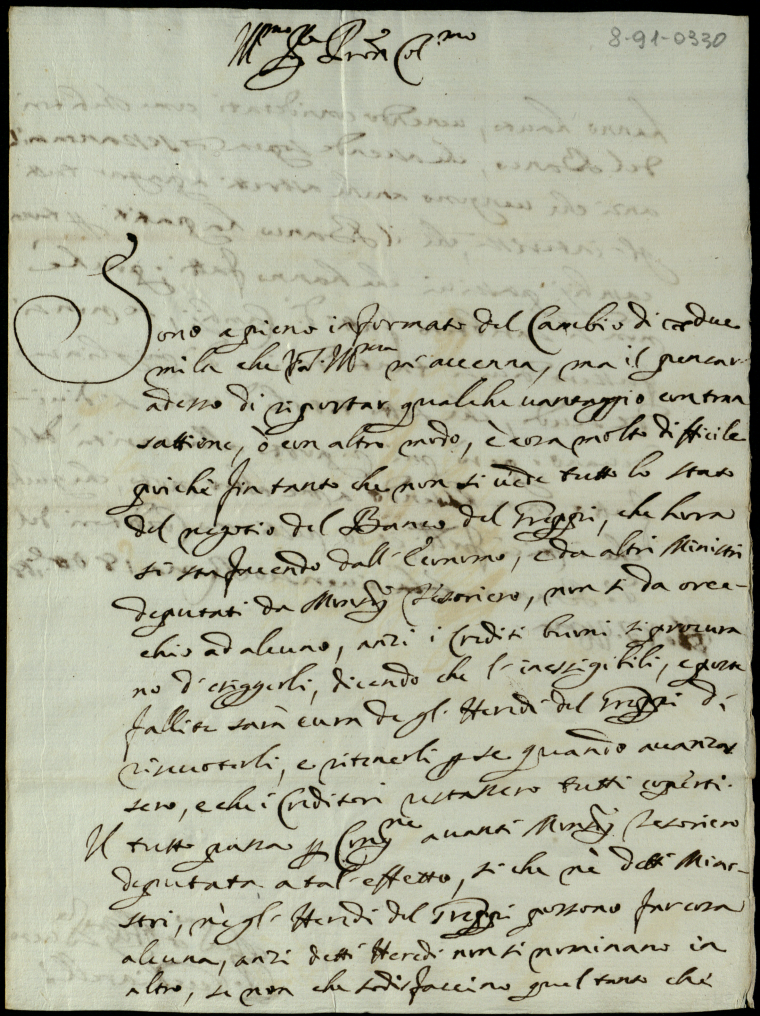 8-91-0330
Ill.mo Sig.re Pron Col.mo
Sono apieno informato del Cambio di due
mila che V.S. Ill.ma mi accenna, ma il pensar
adesso di riportar qualche vantaggio con tran
sattione, ò con altro modo, è cosa molto difficile
poiché fin tanto che non si vede tutto lo stato
del negotio del Banco del Greppi, che hora
si sta facendo dall' Economo, e da altri Ministri
deputati da Monsig.r Tesoriero, non si da orec-
chio ad alcuno, anzi i Crediti buoni si procura
no d'esiggerli, dicendo che l'inessigibili, e
fallite sarà cura de gl' Heredi del Greppi di
riscuoterli, e ritenerli p se quando avanzas
sero, e che i Creditori restassero tutti coperti.
Il tutto passa p Cong.ne avanti Monsig.r Tesoriero
deputata a tal' effetto, si che nè detti Mini-
stri, nè gl' Heredi del Greppi possono far cosa
alcuna, anzi detti Heredi non si nominano in
altro, se non che sodisfaccino quel tanto che